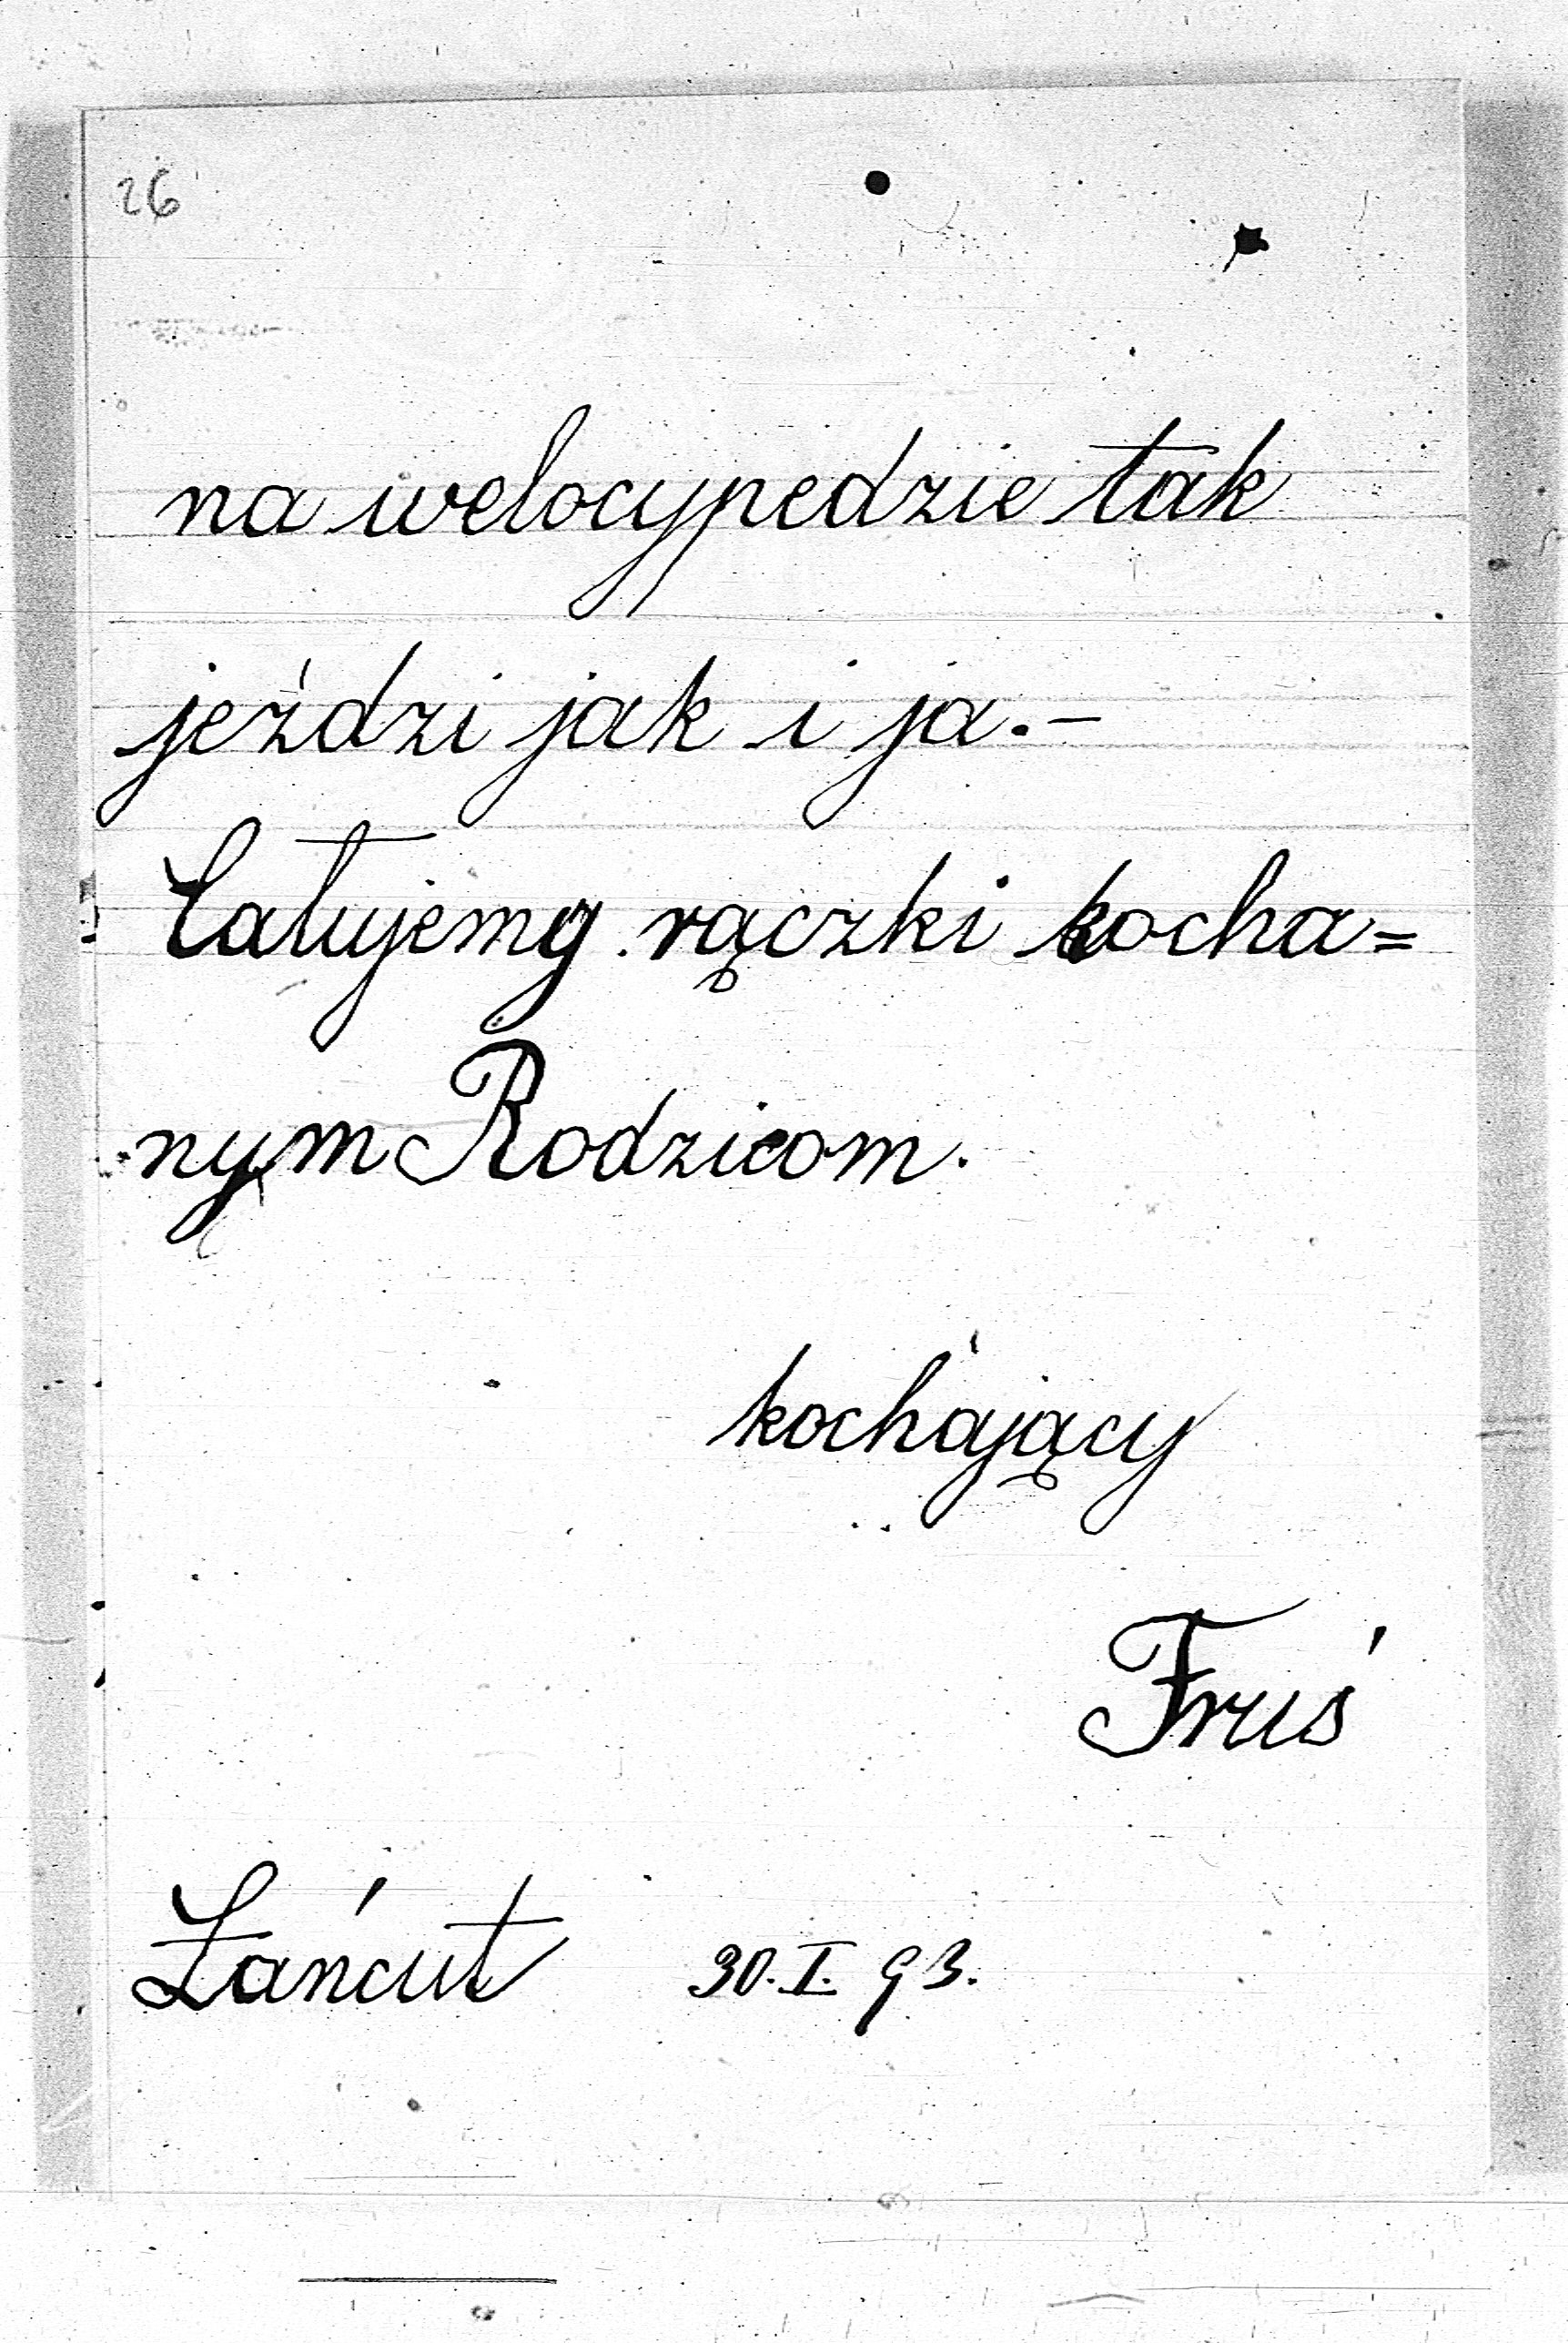 26
na welocypedzie tak
jeździ jak i ja.—
Całujemy rączki kocha=
nym Rodzicom.
kochający
Fruś
Łańcut 30. I. 93.